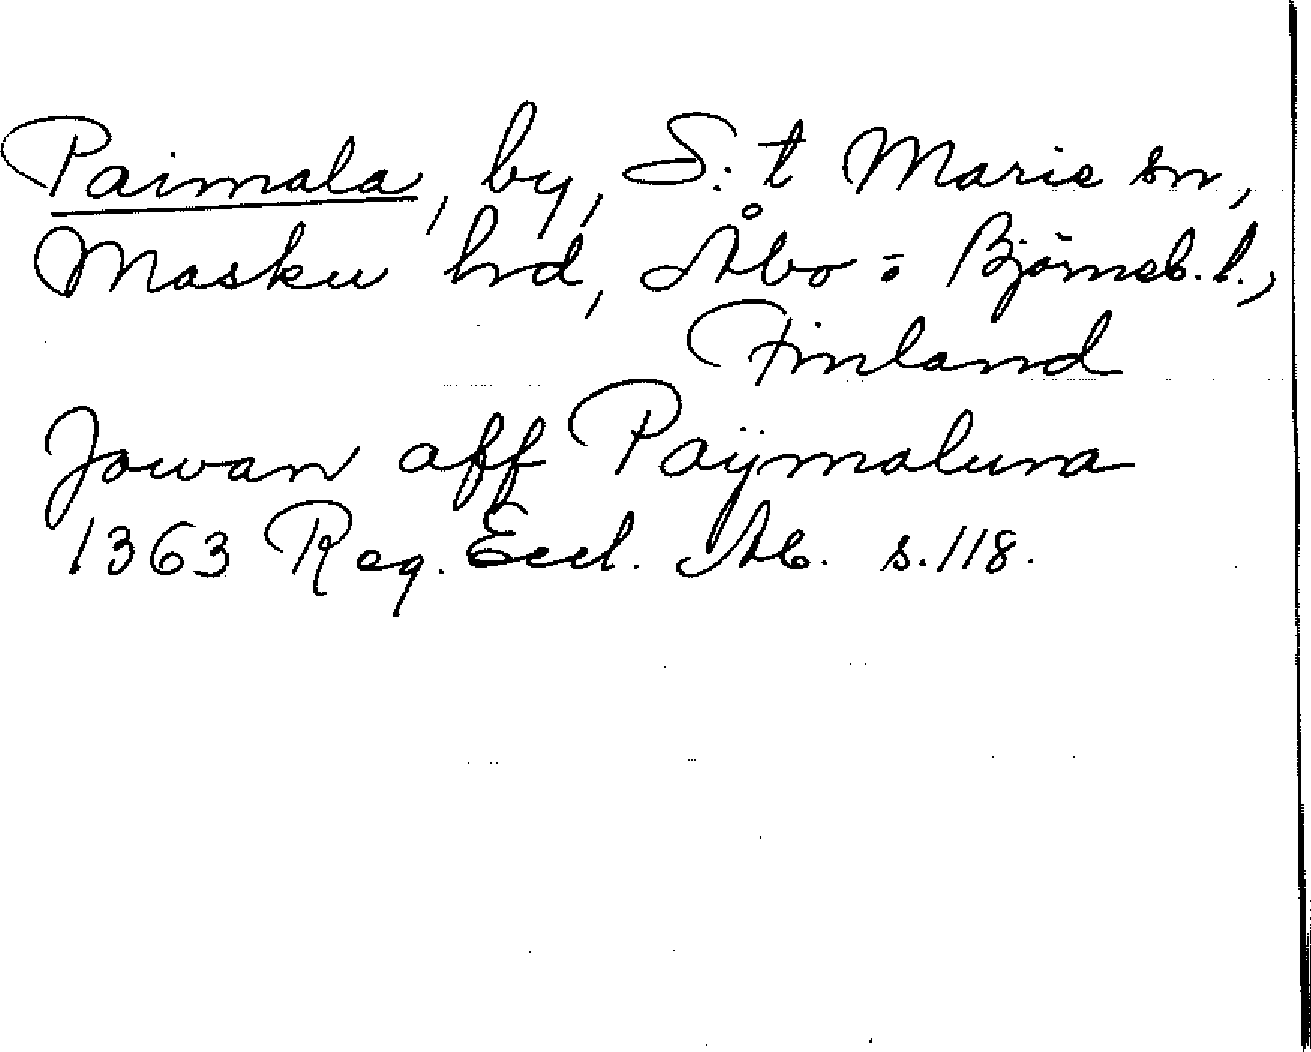 Paimala, by, S:t Marie sn,
Masku hrd, Åbo = Björneb. l.,
Finland
Jowan aff Paÿmaluna
1363 Reg. Eccl. Ab. s. 118.